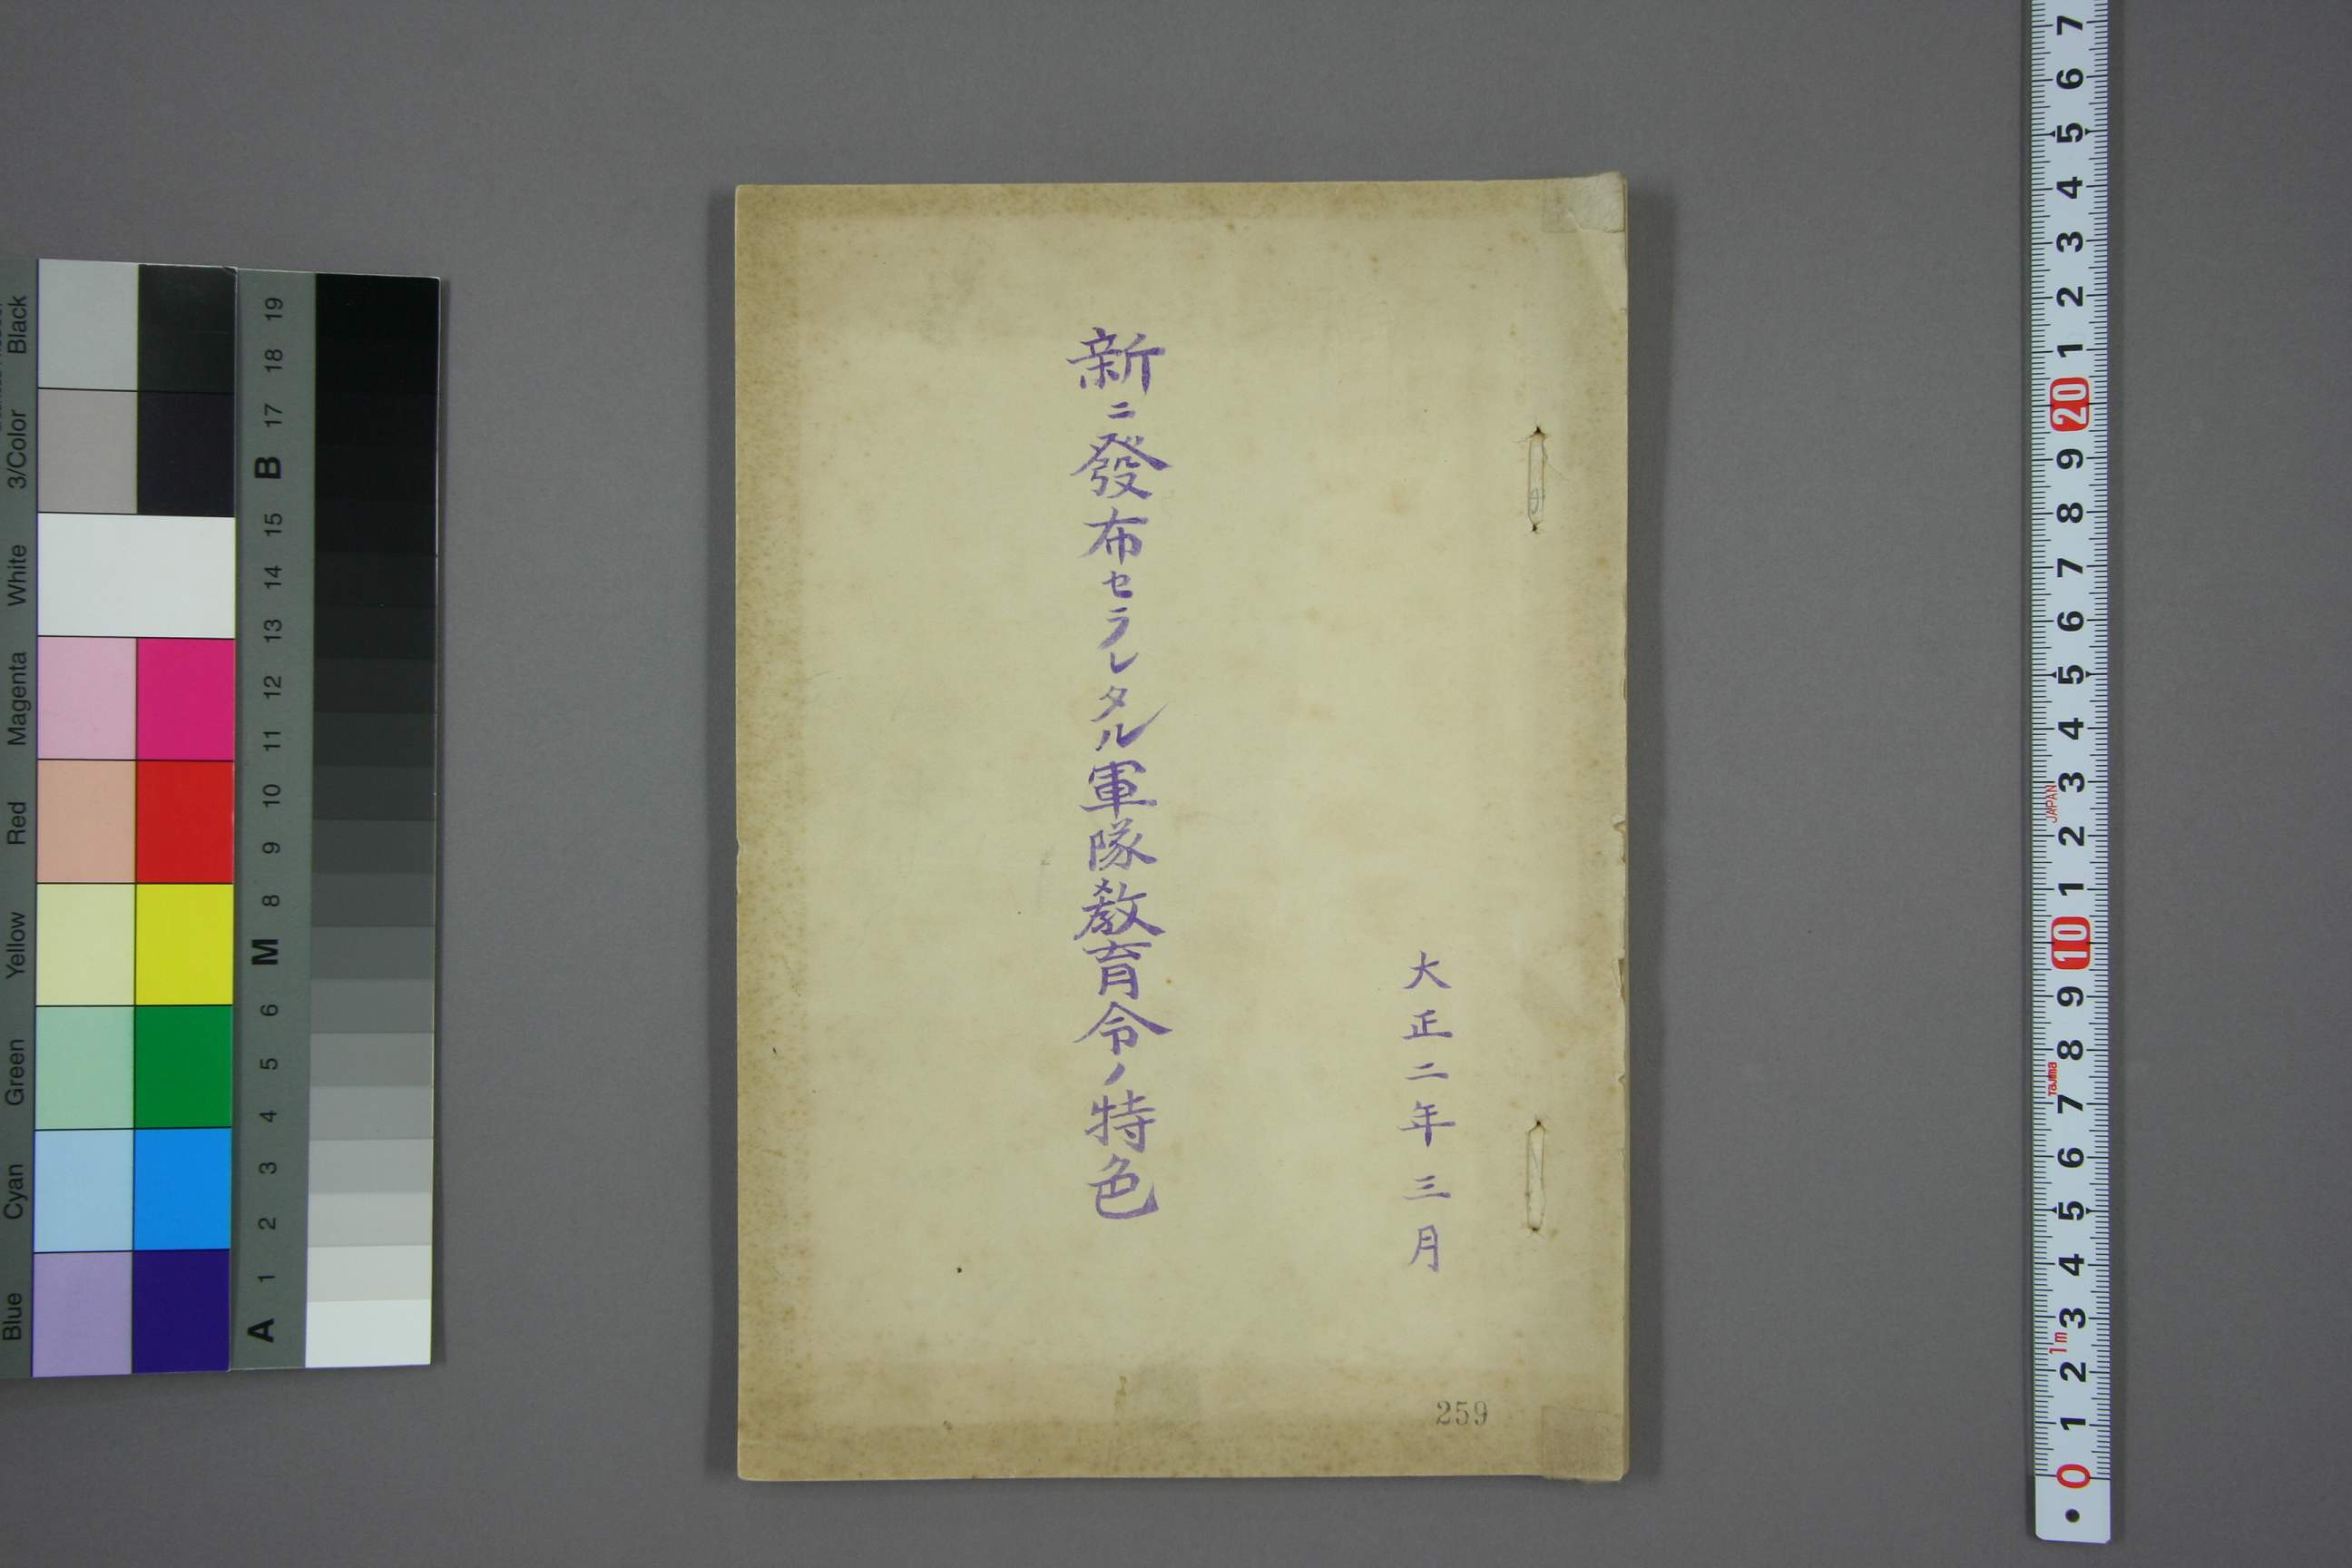 大正二年三月
新ニ發布セラレタル軍隊教育令ノ特色
259
Black
3/Color
White
Magenta
Red
Yellow
Green
Cyan
Blue
19
18
17
B
15
14
13
12
11
10
9
8
M
6
5
4
3
2
1
A
7
6
5
4
3
2
1
20
9
8
7
6
5
4
3
JAPAN
2
1
10
9
8
Tajima
7
6
5
4
3
1m
2
1
0